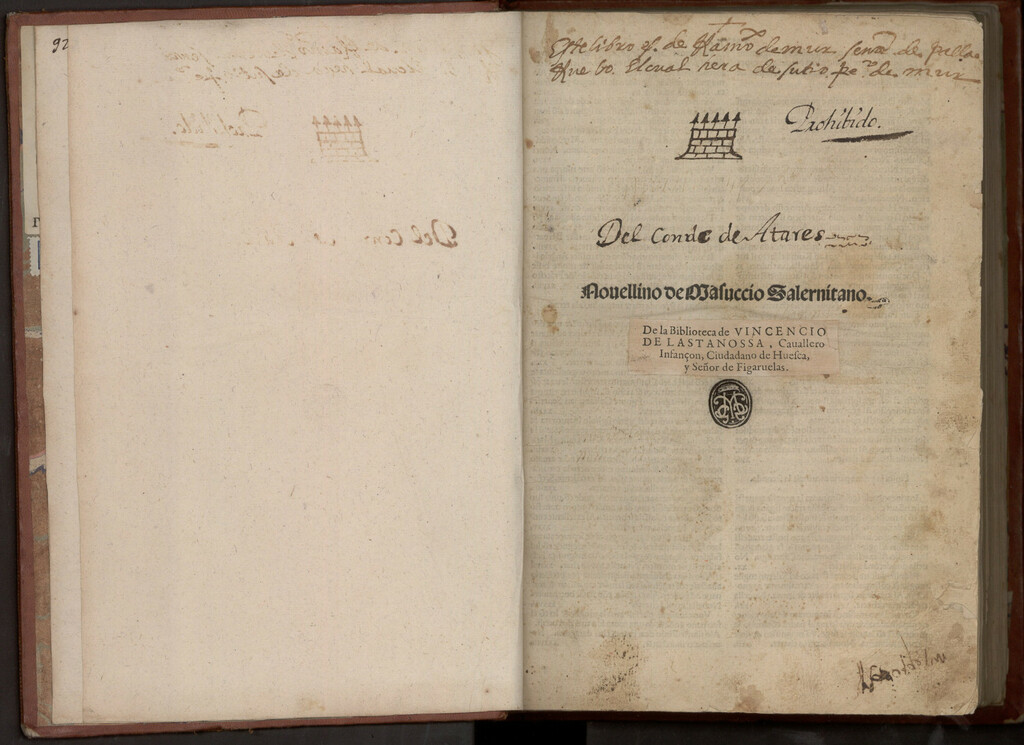 92
Este libro es de Ramō de mur senor de pilla
Rue bo. el cual sera de su tio pe.º de mur
Prohibido.
Del Conde de Atares
Nouellino de Masuccio Salernitano.
De la Biblioteca de VINCENCIO
DE LASTANOSSA, Cauallero
Infançon, Ciudadano de Hueſca,
y Señor de Figaruelas.